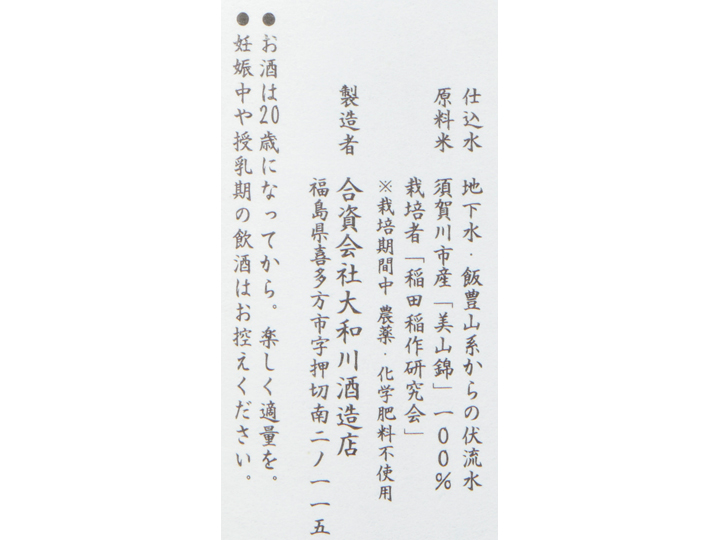 仕込水 地下水・飯豊山系からの伏流水
原料米 須賀川市産「美山錦」一〇〇%
栽培者「稲田稲作研究会」
※栽培期間中 農薬・化学肥料不使用
製造者 合資会社大和川酒造店
福島県喜多方市字押切南二ノ一一五
●お酒は20歳になってから。楽しく適量を。
●妊娠中や授乳期の飲酒はお控えください。